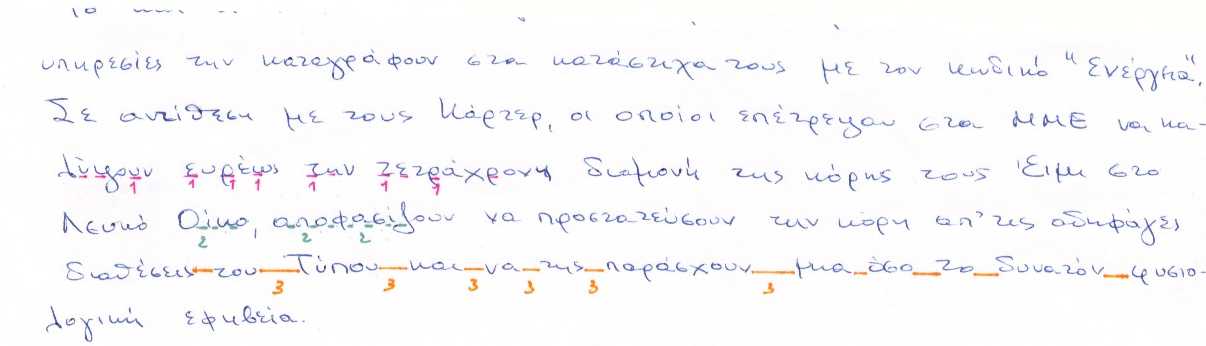 υπηρεσίες την καταγράφουν στα κατάστιχα τους με τον κωδικό "Ενέργεια".
Σε αντίθεση με τους Κάρτερ, οι οποίοι επέτρεψαν στα ΜΜΕ να κα-
λύψουν ευρέως την τετράχρονη διαμονή της κόρης τους Έιμι στο
1 1 1 1 1 1 1
Λευκό Οίκο, αποφασίζουν να προστατεύσουν την κόρη απ' τις αδηφάγες
2 2 2
διαθέσεις του Τύπου και να της παράσχουν μια όσο το δυνατόν φυσιο-
3 3 3 3 3 3
λογική εφηβεία.